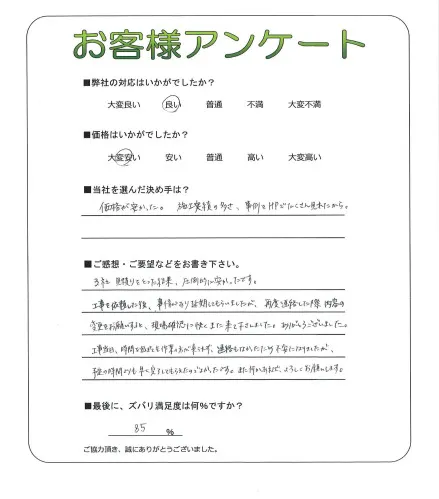 お客様アンケート
■弊社の対応はいかがでしたか？
大変良い 良い 普通 不満 大変不満
■価格はいかがでしたか？
大変安い 安い 普通 高い 大変高い
■当社を選んだ決め手は？
価格が安かった。 施工実績の多さ、事例をHPでたくさん見れたから。
■ご感想・ご要望などをお書き下さい。
3社 見積りをとった結果、圧倒的に安かったです。
工事を依頼した後、事情があり延期してもらいましたが、再度連絡した際 内容の
変更をお願いすると、現場確認に快くまた来て下さいました。ありがとうございました。
工事当日、時間を過ぎても作業の方が来られず、連絡もなかったため不安になりましたが、
予定の時間よりも早く完了してもらえたのでよかったです。また何かあれば、よろしくお願いします。
■最後に、ズバリ満足度は何％ですか？
85 %
ご協力頂き、誠にありがとうございました。